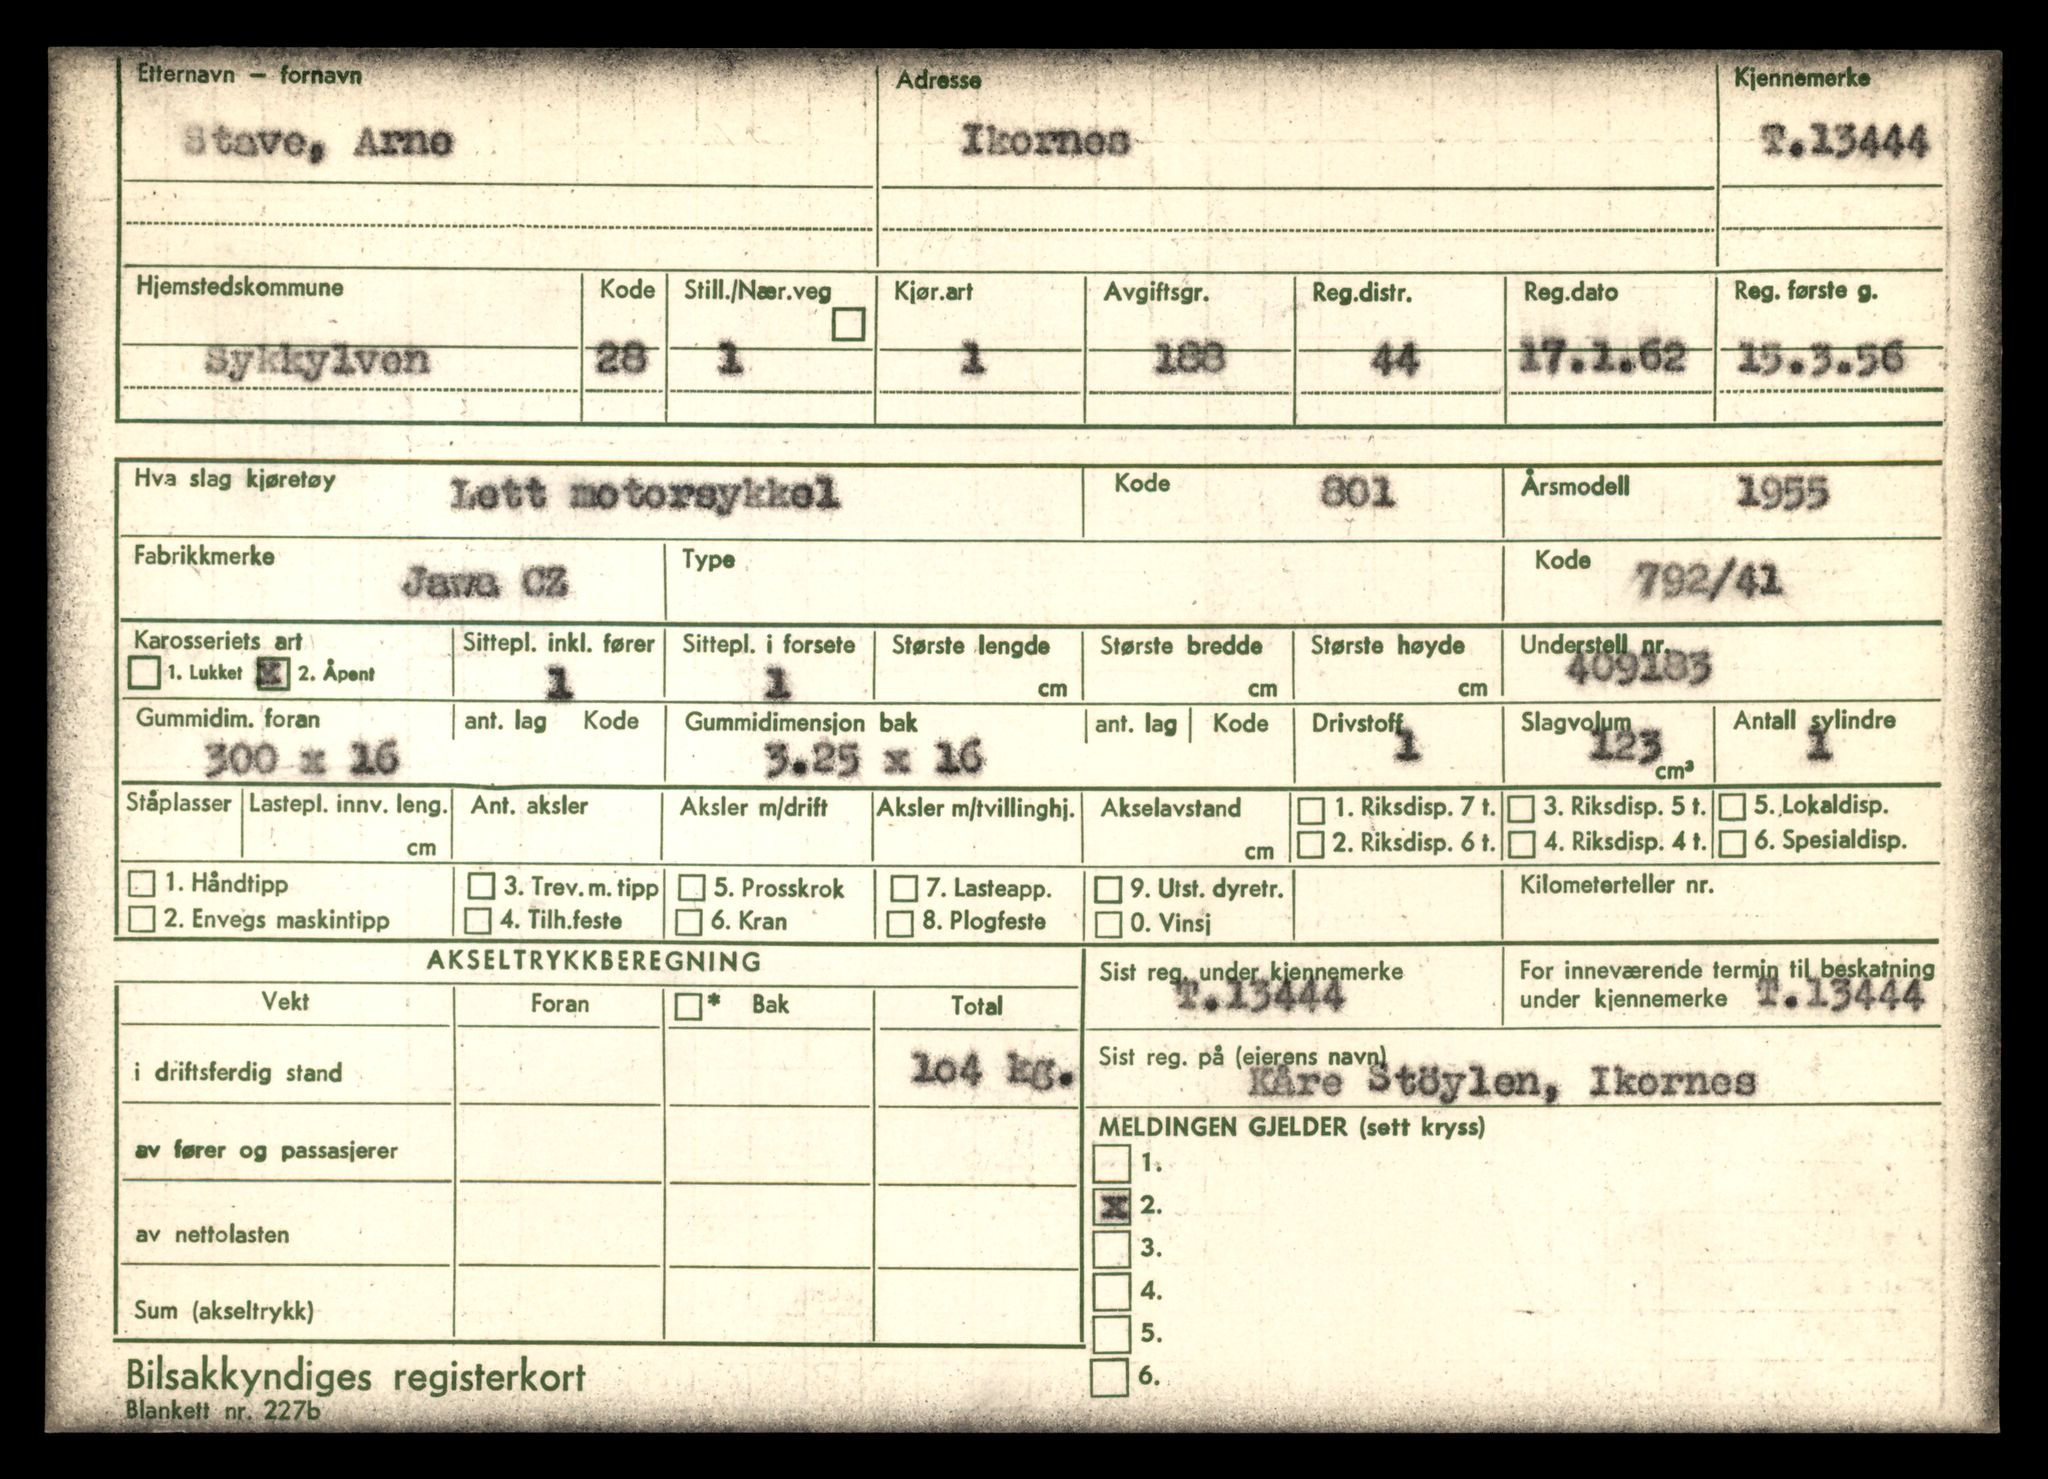 Etternavn – fornavn Adresse Kjennemerke
Stave, Arne Ikornes T.13444
Hjemstedskommune Kode Still./Nær.veg Kjør.art Avgiftsgr. Reg.distr. Reg.dato Reg. første g.
Sykkylven 28 1 1 188 44 17.1.62 15.3.56
Hva slag kjøretøy Lett motorsykkel Kode 801 Årsmodell 1955
Fabrikkmerke Jawa CZ Type Kode 792/41
Karosseriets art Sittepl. inkl. fører Sittepl. i forsete Største lengde Største bredde Største høyde Understell nr.
1. Lukket X 2. Åpent 1 1 cm cm cm 409183
Gummidim. foran ant. lag Kode Gummidimensjon bak ant. lag Kode Drivstoff Slagvolum Antall sylindre
300 x 16 3.25 x 16 1 123 cm³ 1
Ståplasser Lastepl. innv. leng. Ant. aksler Aksler m/drift Aksler m/tvillinghj. Akselavstand 1. Riksdisp. 7 t. 3. Riksdisp. 5 t. 5. Lokaldisp.
cm cm 2. Riksdisp. 6 t. 4. Riksdisp. 4 t. 6. Spesialdisp.
1. Håndtipp 3. Trev. m. tipp 5. Prosskrok 7. Lasteapp. 9. Utst. dyretr. Kilometerteller nr.
2. Envegs maskintipp 4. Tilh.feste 6. Kran 8. Plogfeste 0. Vinsj
AKSELTRYKKBEREGNING
Vekt Foran * Bak Total
i driftsferdig stand 1o4 kg.
av fører og passasjerer
av nettolasten
Sum (akseltrykk)
Sist reg. under kjennemerke
T.13444
For inneværende termin til beskatning
under kjennemerke T.13444
Sist reg. på (eierens navn)
Kåre Stöylen, Ikornes
MELDINGEN GJELDER (sett kryss)
1.
X 2.
3.
4.
5.
6.
Bilsakkyndiges registerkort
Blankett nr. 227b